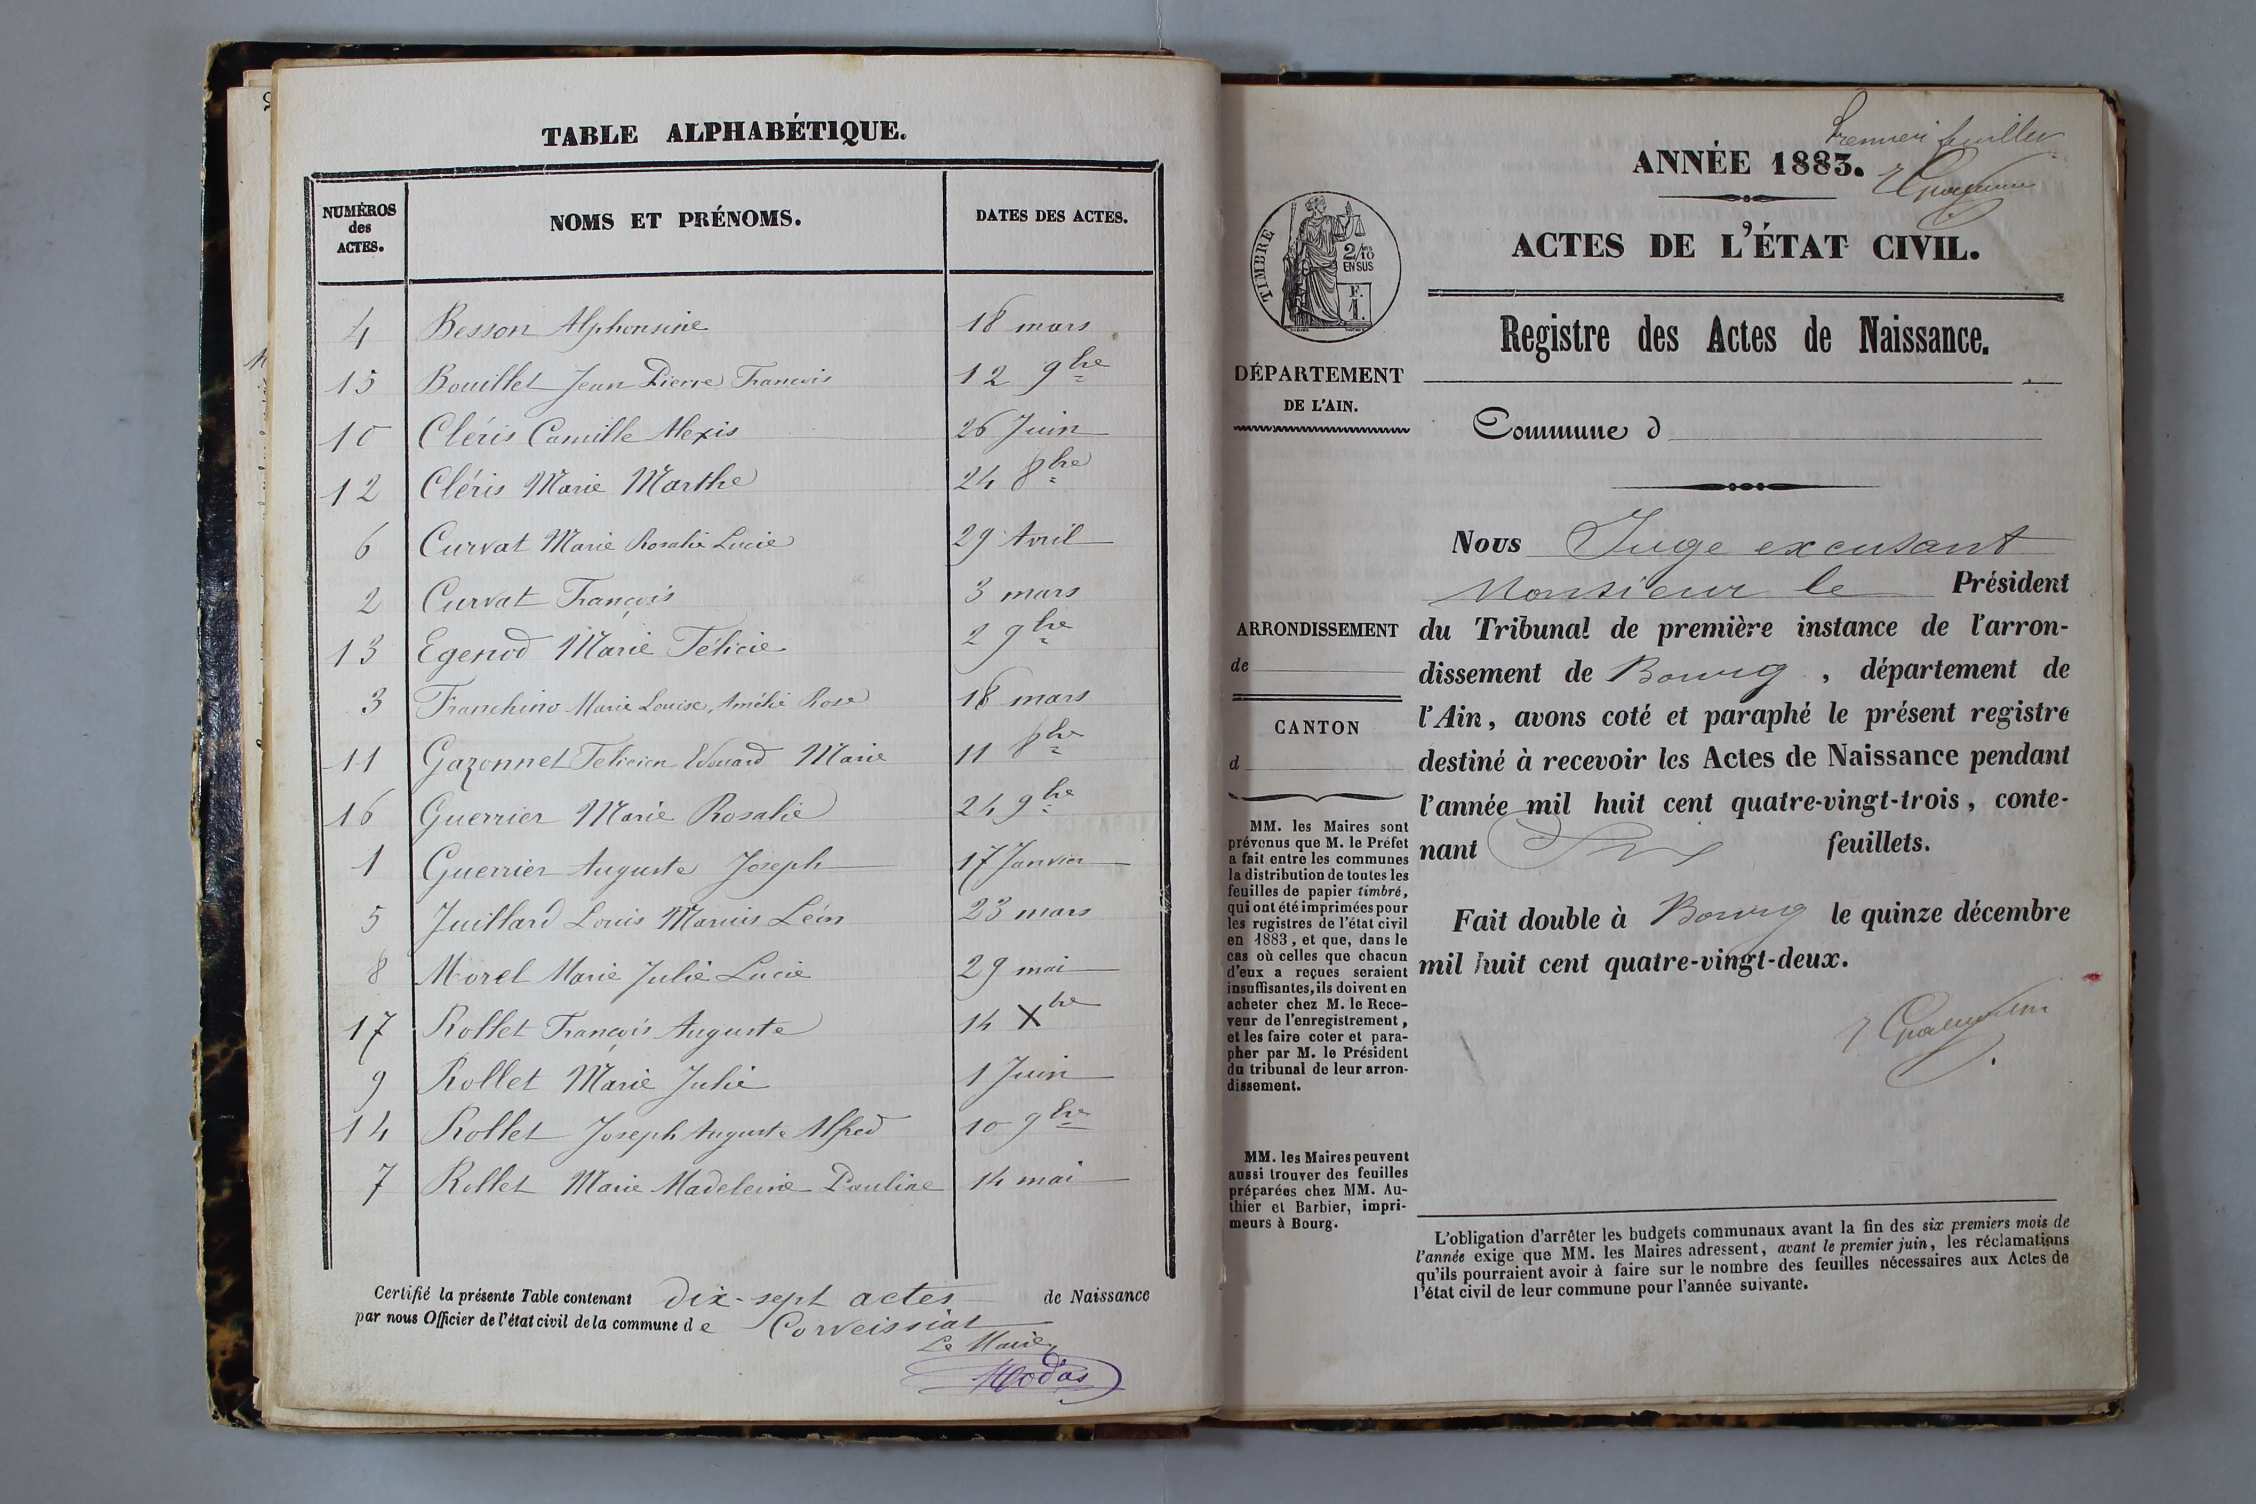 TABLE ALPHABÉTIQUE.
NUMÉROS des ACTES.
NOMS ET PRÉNOMS.
DATES DES ACTES.
4 Besson Alphonsine 18 mars
15 Bouillet Jean Pierre François 12 9bre
10 Cléris Camille Alexis 26 Juin
12 Cléris Marie Marthe 24 8bre
6 Curvat Marie Rosalie Lucie 29 Avril
2 Curvat François 3 mars
13 Egenod Marie Félicie 2 9bre
3 Franchino Marie Louise, Amélie Rose 18 mars
11 Gazonnet Felicien Edouard Marie 11 8bre
16 Guerrier Marie Rosalie 24 9bre
1 Guerrier Auguste Joseph 17 Janvier
5 Juillard Louis Marius Léon 23 mars
8 Morel Marie Julie Lucie 29 mai
17 Rollet François Auguste 14 Xbre
9 Rollet Marie Julie 1 Juin
14 Rollet Joseph Auguste Alfred 10 9bre
7 Rollet Marie Madeleine Pauline 14 mai
Certifié la présente Table contenant dix-sept actes de Naissance
par nous Officier de l'état civil de la commune de Corveissiat
Le Maire
Premier feuillet
ANNÉE 1883.
ACTES DE L'ÉTAT CIVIL.
TIMBRE
2/10 EN SUS
F. 1.
Registre des Actes de Naissance.
DÉPARTEMENT
DE L'AIN.
Commune d
Nous Juge excusant
Monsieur le Président
du Tribunal de première instance de l'arron-
dissement de Bourg, département de
l'Ain, avons coté et paraphé le présent registre
destiné à recevoir les Actes de Naissance pendant
l'année mil huit cent quatre-vingt-trois, conte-
nant feuillets.
Fait double à Bourg le quinze décembre
mil huit cent quatre-vingt-deux.
ARRONDISSEMENT
de
CANTON
d
MM. les Maires sont
prévenus que M. le Préfet
a fait entre les communes
la distribution de toutes les
feuilles de papier timbré,
qui ont été imprimées pour
les registres de l'état civil
en 1883, et que, dans le
cas où celles que chacun
d'eux a reçues seraient
insuffisantes, ils doivent en
acheter chez M. le Rece-
veur de l'enregistrement,
et les faire coter et para-
pher par M. le Président
du tribunal de leur arron-
dissement.
MM. les Maires peuvent
aussi trouver des feuilles
préparées chez MM. Au-
thier et Barbier, impri-
meurs à Bourg.
L'obligation d'arrêter les budgets communaux avant la fin des six premiers mois de
l'année exige que MM. les Maires adressent, avant le premier juin, les réclamations
qu'ils pourraient avoir à faire sur le nombre des feuilles nécessaires aux Actes de
l'état civil de leur commune pour l'année suivante.